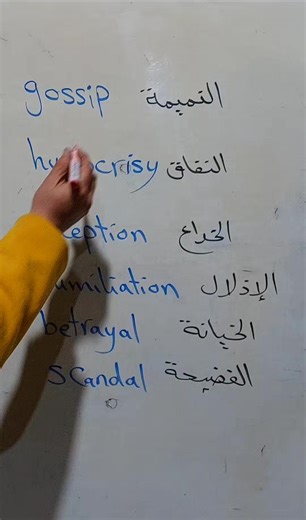 gossip النميمة
hy crisy النفاق
ception الخداع
umiliation الإذلال
betrayal الخيانة
scandal الفضيحة